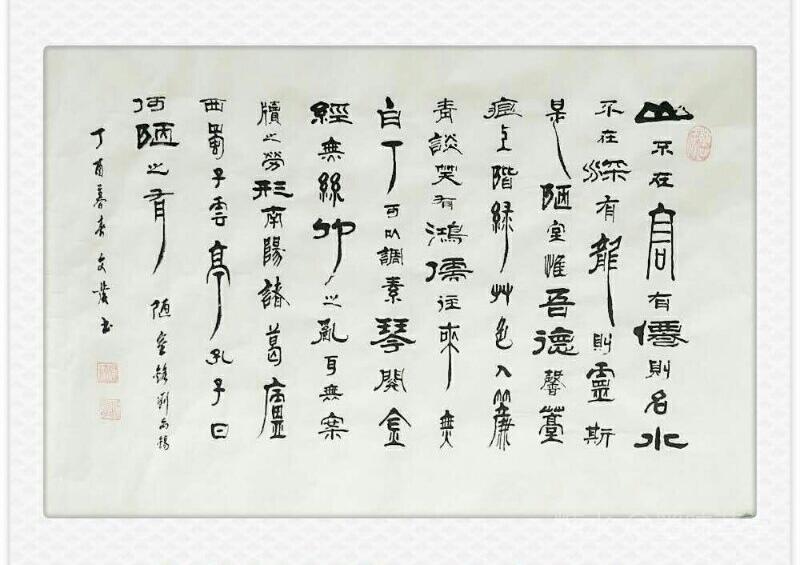 山不在高有僊則名水
不在深有龍則靈斯
是陋室惟吾德馨薹
痕上階綠艸色入簾
青談笑有鴻儒往來無
白丁可以調素琴閱金
經無絲竹之亂耳無案
牘之勞形南陽諸葛廬
西蜀子雲亭孔子曰
何陋之有
陋室銘劉禹錫
丁酉暮春文書